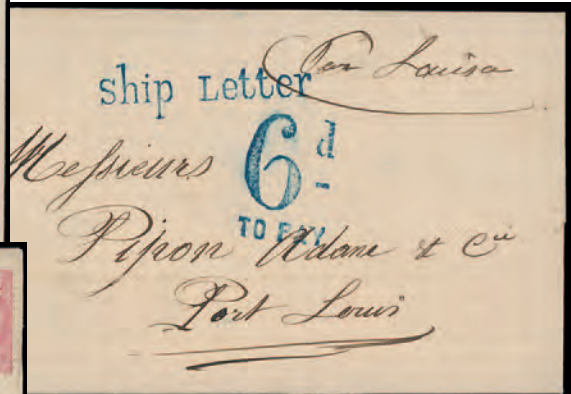 Per Louisa
Ship Letter
6d
TO PAY
Messieurs
Pipon Adam & Cie
Port Louis